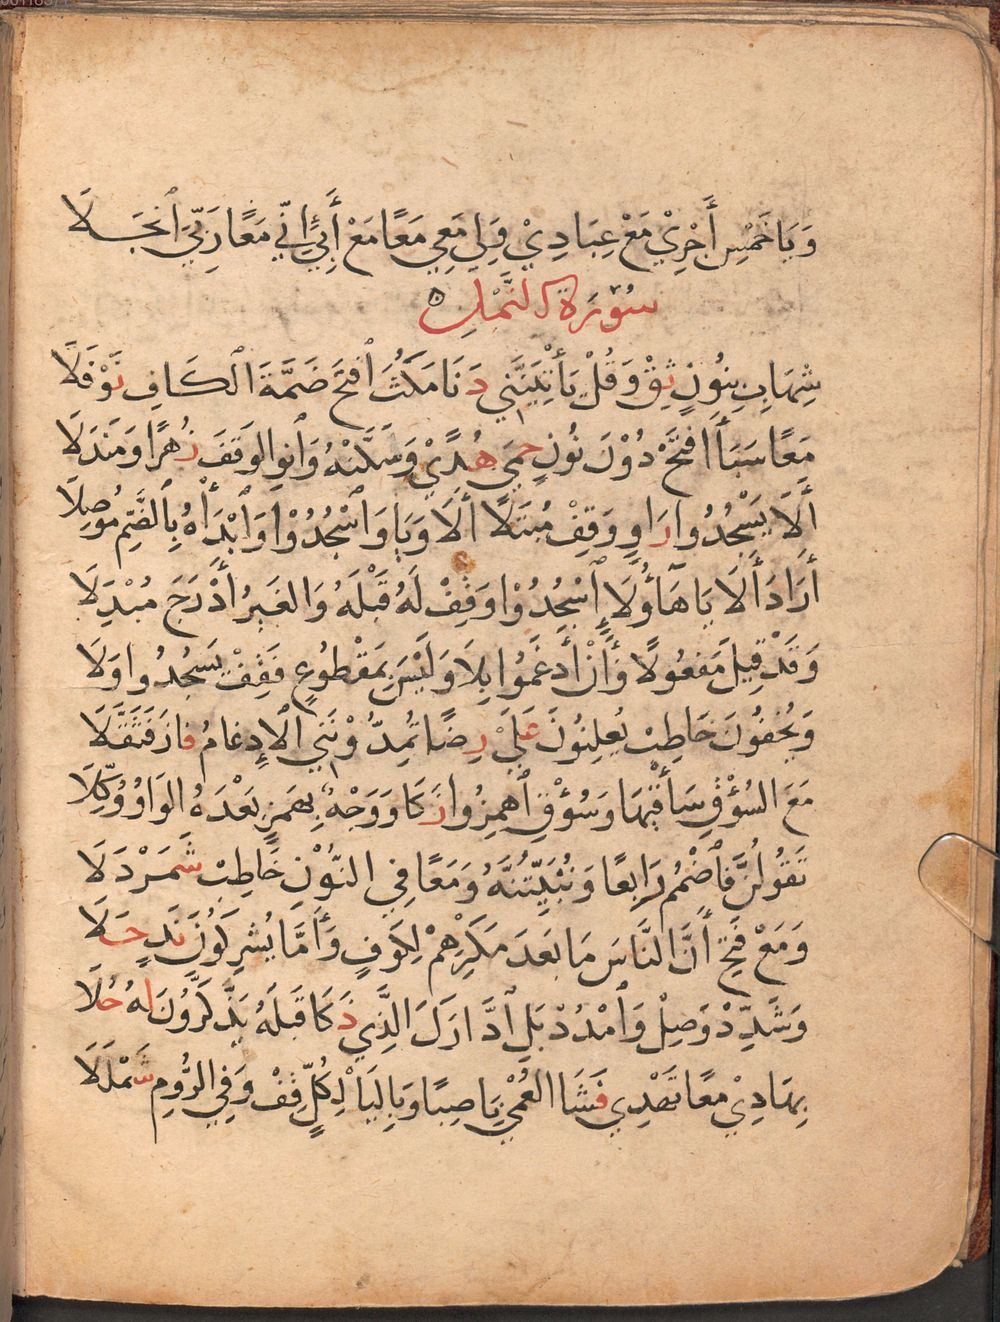 وَيَا خَمْسِ أَجْرِيْ مَعْ عِبَادِيْ وَلِي مَعِي مَعًا مَعْ أَبِيْ إِنِّي مَعًا رَبِّيَ ٱنْجَلَا
سُوْرَةُ النَّمْلِ
شِهَابٍ بِنُونٍ ثِقْ وَقُلْ يَأْتِيَنَّنِي دَنَا مَكُثَ ٱفْتَحْ ضَمَّةَ الْكَافِ نَوْفَلَا
مَعًا سَبَأَ ٱفْتَحْ دُوْنَ نُونٍ حِمَى هُدًىْ وَسَكِّنْهُ وَٱنْوِ الوَقْفَ زُهْرًا وَمَنْدَلَا
أَلَا يَسْجُدُوا رَاوٍ وَقِفْ مُبْتَلًا أَلَا وَيَا وَٱسْجُدُوْا وَٱبْدَأْهُ بِٱلضَّمِّ مُوصِلَا
أَرَادَ أَلَا يَا هَٰٓأُولَا إِسْجُدُوْا وَقِفْ لَهُ قَبْلَهُ وَالغَيْرُ أَدْرَجَ مُبْدِلَا
وَقَدْ قِيلَ مَفْعُولًا وَأَنْ أَدْغَمُوا بِلَا وَلَيْسَ بِمَقْطُوعٍ فَقِفْ يَسْجُدُوا وَلَا
وَيُخْفُونَ خَاطِبْ يُعْلِنُونَ عَلَىْ رِضًا تُمِدُّوْنَنِي الْإِدْغَامُ فَازَ فَثَقَّلَا
مَعَ السُّؤْقِ سَأْقَيْهَا وَسُؤْقِ ٱهْمِزُوا زَكَا وَوَجْهٌ بِهَمْزٍ بَعْدَهُ الوَاوُ وُكِّلَا
تَقُولُنَّ فَٱضْمُمْ رَابِعًا وَنُبَيِّتُنَّهُ وَمَعًا فِي النُّوْنِ خَاطِبْ شَمَرْدَلَا
وَمَعْ فَتْحِ أَنَّ النَّاسَ مَا بَعْدَ مَكْرِهِمْ لِكُوفٍ وَأَمَّا يُشْرِكُونَ نَدٍ حَلَا
وَشَدِّدْ وَصِلْ وَٱمْدُدْ بَلِ ٱدَّارَكَ الَّذِي ذَكَا قَبْلَهُ يَذَّكَّرُونَ لَهُ حُلَا
بِهَادِيْ مَعًا تَهْدِي فَشَا العُمْيَ نَاصِبًا وَبِاليَا لِكُلٍّ قِفْ وَفِي الرُّومِ شَمْلَلَا